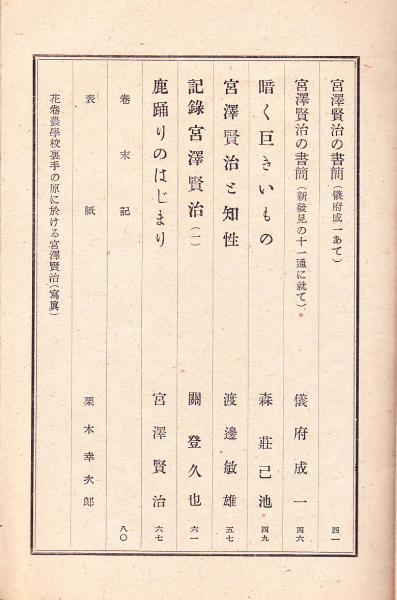 宮澤賢治の書簡(儀府成一あて) 四一
宮澤賢治の書簡(新發見の十一通に就て) 儀府成一 四六
暗く巨きいもの 森莊已池 四九
宮澤賢治と知性 渡邊敏雄 五七
記錄宮澤賢治(一) 關登久也 六一
鹿踊りのはじまり 宮澤賢治 六七
卷末記 八〇
表紙 栗木幸次郎
花卷農學校裏手の原に於ける宮澤賢治(寫眞)